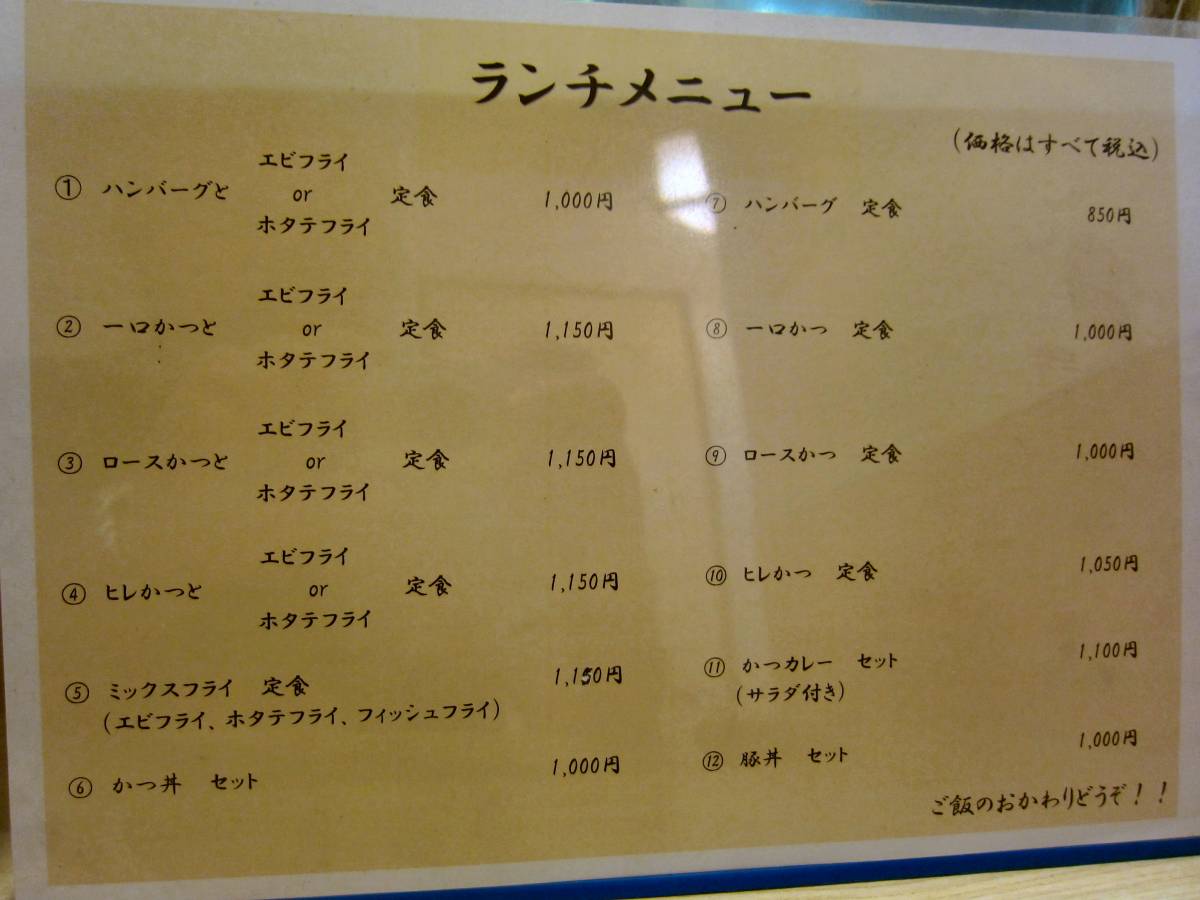 ランチメニュー
(価格はすべて税込)
① ハンバーグと エビフライ or ホタテフライ 定食 1,000円
② 一口かつと エビフライ or ホタテフライ 定食 1,150円
③ ロースかつと エビフライ or ホタテフライ 定食 1,150円
④ ヒレかつと エビフライ or ホタテフライ 定食 1,150円
⑤ ミックスフライ 定食 1,150円
(エビフライ、ホタテフライ、フィッシュフライ)
⑥ かつ丼 セット 1,000円
⑦ ハンバーグ 定食 850円
⑧ 一口かつ 定食 1,000円
⑨ ロースかつ 定食 1,000円
⑩ ヒレかつ 定食 1,050円
⑪ かつカレー セット 1,100円
(サラダ付き)
⑫ 豚丼 セット 1,000円
ご飯のおかわりどうぞ！！